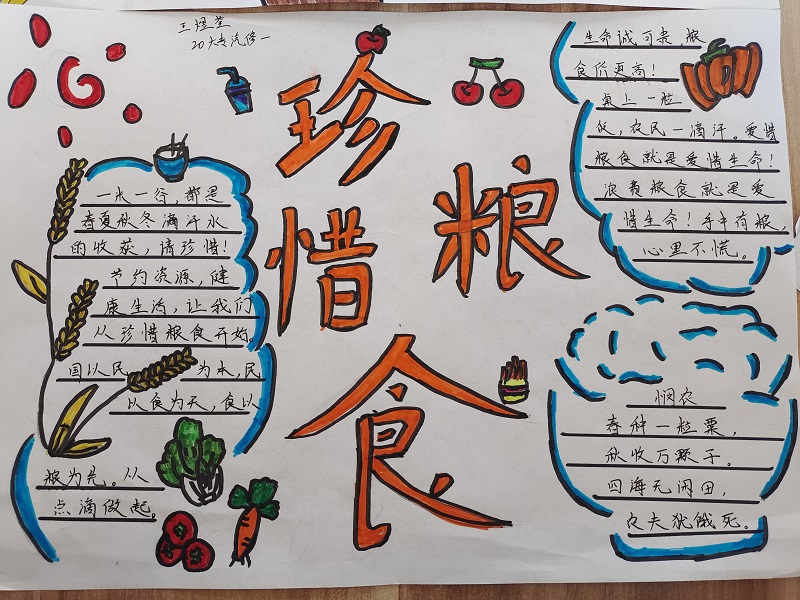 王煜莹
20大专汽修一
珍惜粮食
一米一谷，都是
春夏秋冬滴汗水
的收获，请珍惜！
节约资源，健
康生活，让我们
从珍惜粮食开始。
国以民 为本，民
以食为天，食以
粮为先。从
点滴做起。
生命诚可贵，粮
食价更高！
桌上一粒
饭，农民一滴汗。爱惜
粮食就是爱惜生命！
浪费粮食就是爱
惜生命！手中有粮，
心里不慌。
悯农
春种一粒粟，
秋收万颗子。
四海无闲田，
农夫犹饿死。